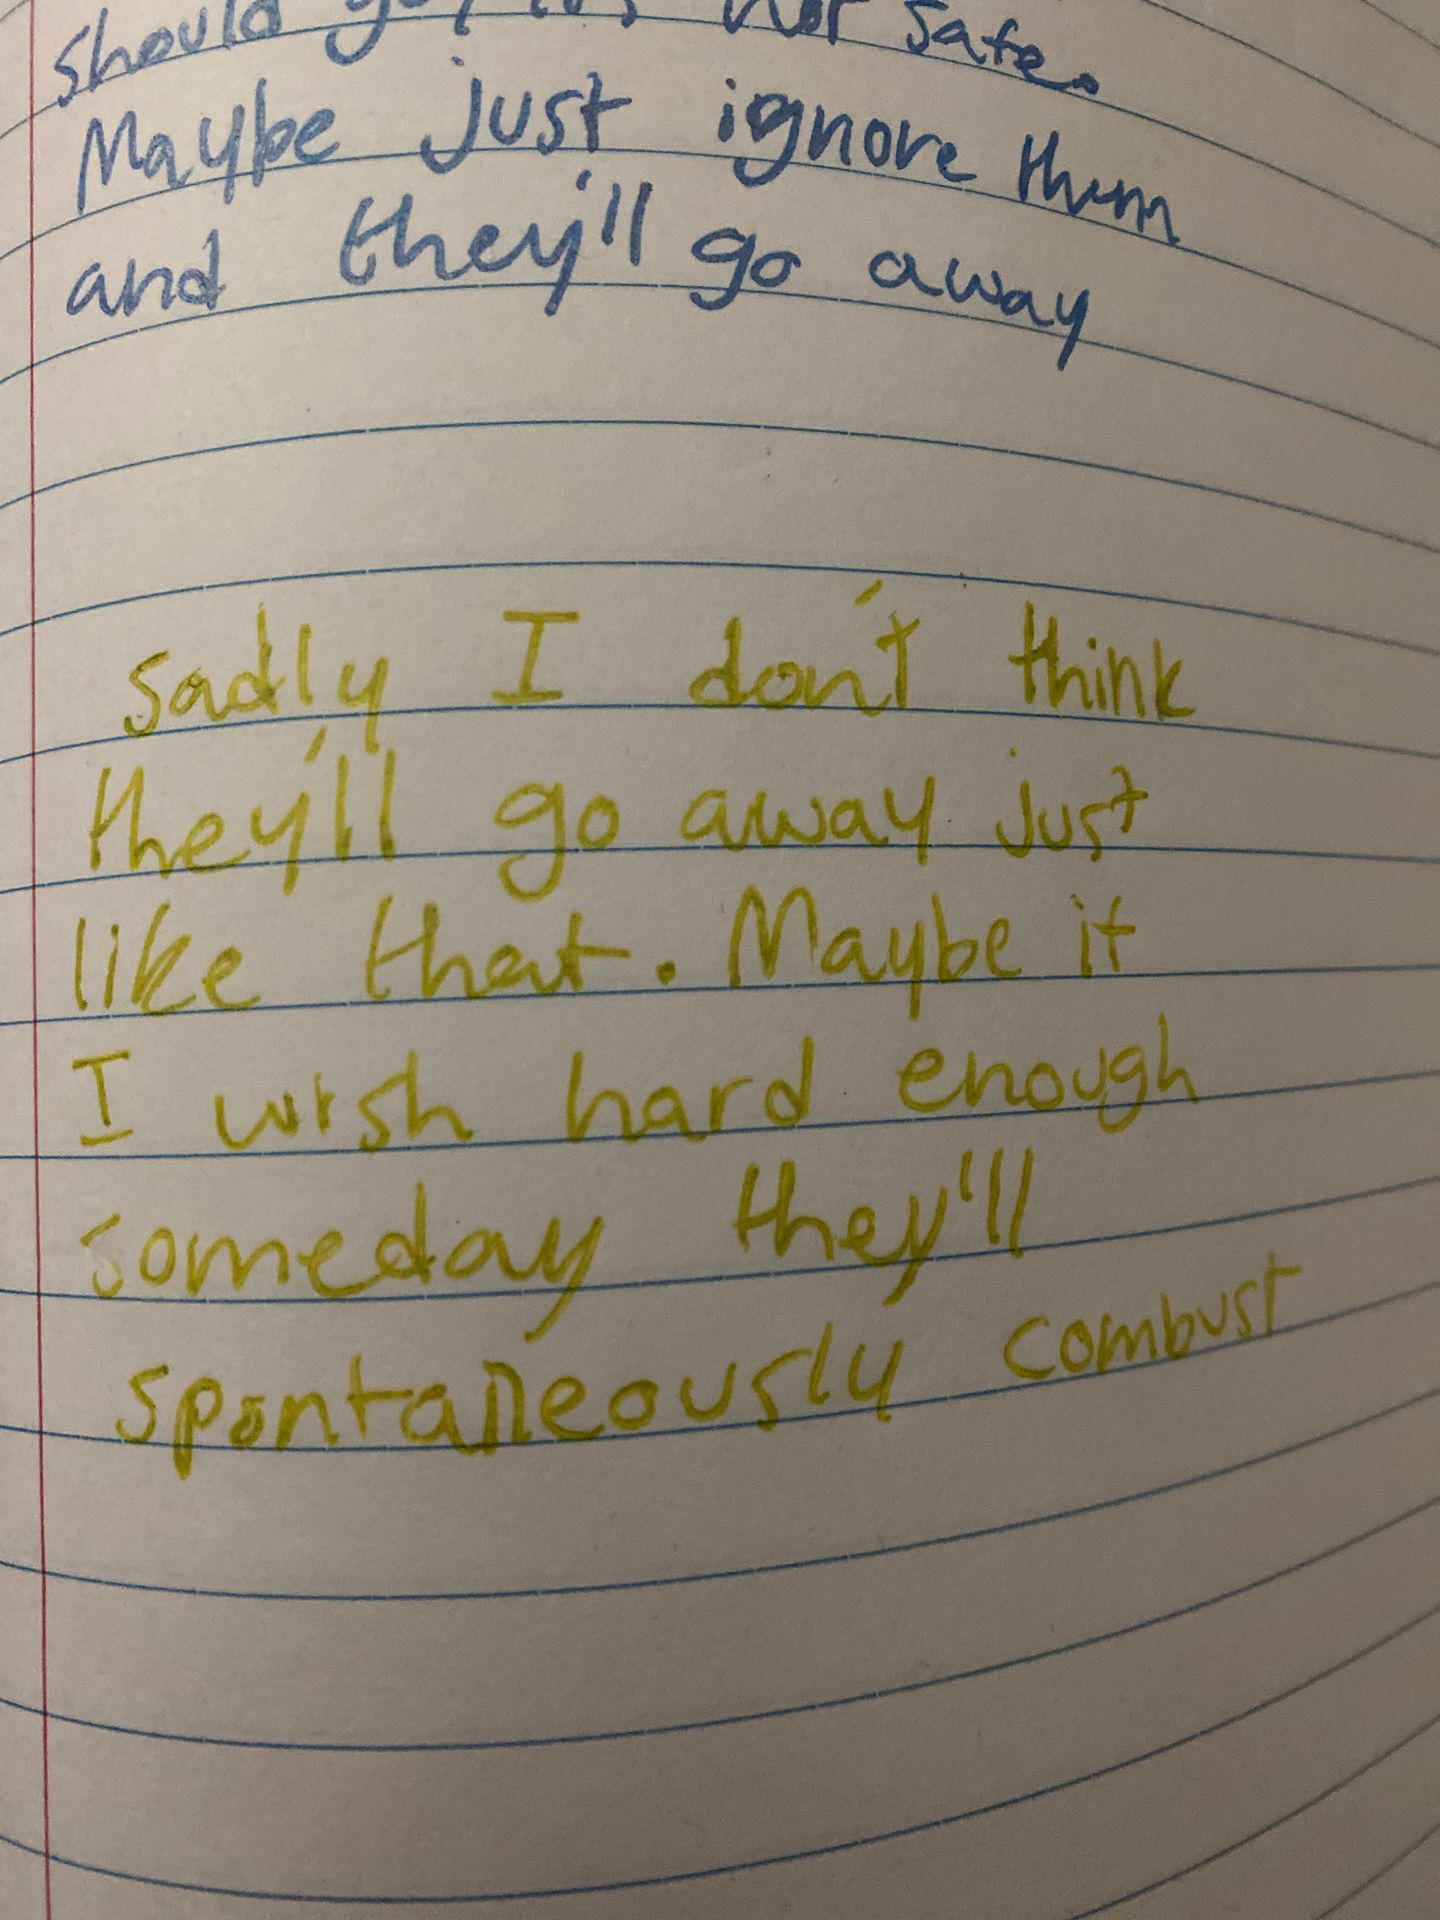 should go, it's not safe.
Maybe just ignore them
and they'll go away
sadly I don't think
they'll go away just
like that. Maybe if
I wish hard enough
someday they'll
spontaneously combust